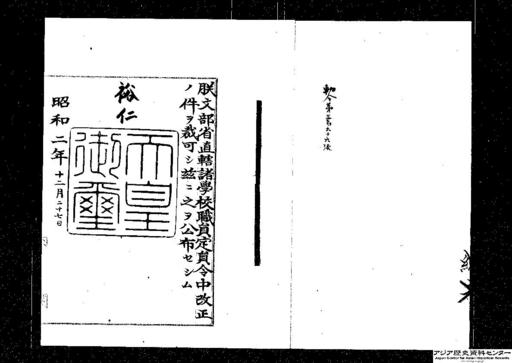 勅令第三百六十六号
朕文部省直轄諸學校職員定員令中改正
ノ件ヲ裁可シ茲ニ之ヲ公布セシム
裕仁
天皇
御璽
昭和二年十二月二十七日
アジア歴史資料センター
Japan Center for Asian Historical Records